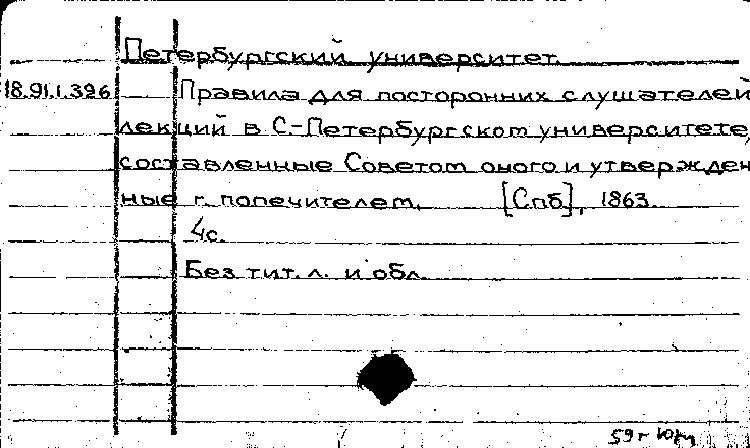 Петербургский университет.
18.91.1.396 Правила для посторонних слушателей
лекций в С.-Петербургском университете,
составленные Советом оного и утвержден
ные г. попечителем. [Спб], 1863.
4с.
Без тит. л. и обл.
59 г